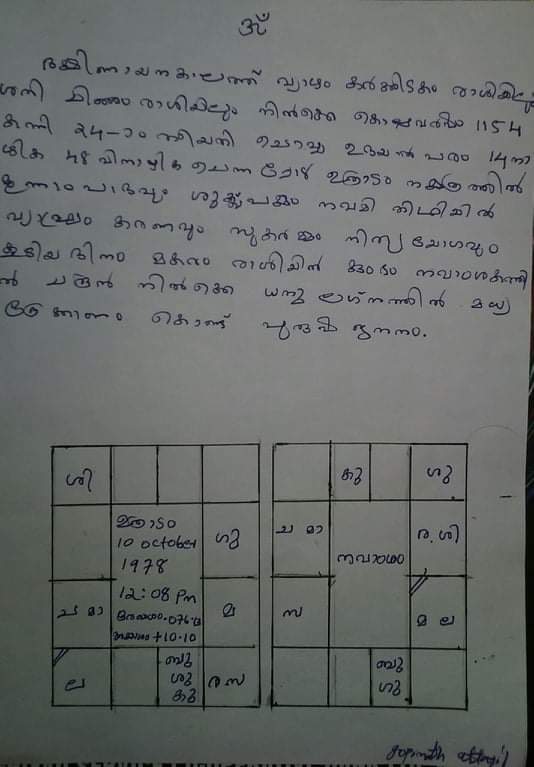 ഓം
ദക്ഷിണായനകാലത്ത് വ്യാഴം കർക്കിടകം രാശിയിലും
ശനി ചിങ്ങം രാശിയിലും നിൽക്കെ കൊല്ലവർഷം 1154
കന്നി 24-ാം തിയതി ചൊവ്വ ഉദയൽ പരം 14 നാ
ഴിക 48 വിനാഴിക ചെന്നപ്പോൾ ഉത്രാടം നക്ഷത്രത്തിൽ
മൂന്നാം പാദവും ശുക്ലപക്ഷം നവമി തിഥിയിൽ
വ്യാഘ്രം കരണവും സുകർമ്മം നിത്യയോഗവും
കൂടിയ ദിനം മകരം രാശിയിൽ കുംഭം നവാംശകത്തി
ൽ ചന്ദ്രൻ നിൽക്കെ ധനു ലഗ്നത്തിൽ മദ്ധ്യ
ദ്രേക്കാണം കൊണ്ട് പുരുഷ ജനനം.
ശി
ഉത്രാടം
10 October
1978
ഗു
ച മാ
12:08 Pm
മ
+10.10
ല
ബു
ശു
കു
ര സ
കു
ശു
ച മാ
നവാംശം
ര.ശി
സ
മ ല
ബു
ഗു